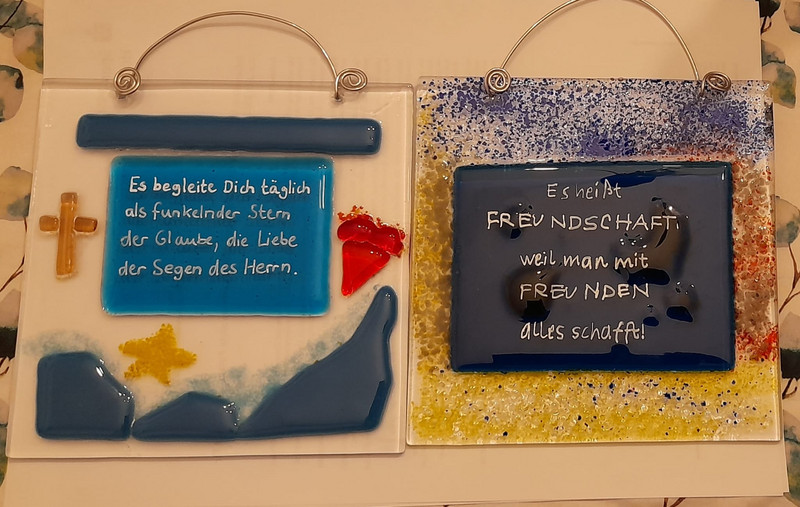 Es begleite Dich täglich
als funkelnder Stern
der Glaube, die Liebe
der Segen des Herrn.
Es heißt
FREUNDSCHAFT,
weil man mit
FREUNDEN
alles schafft!